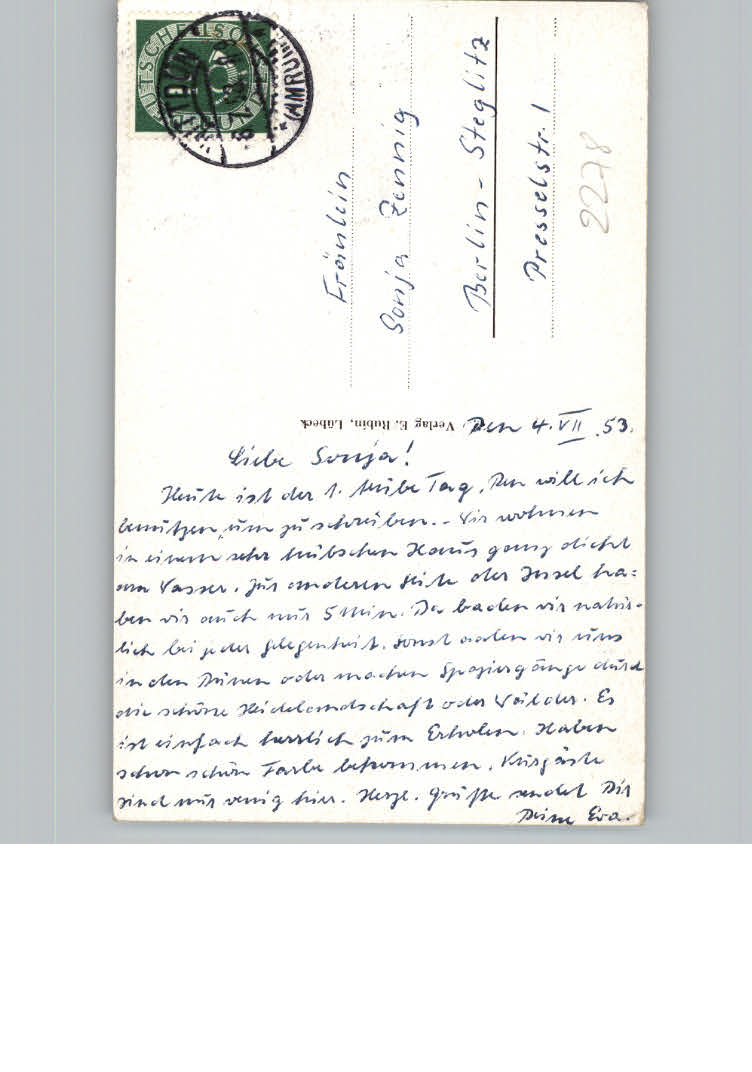 Fräulein
Sonja Zennig
Berlin - Steglitz
Presselstr. 1
2278
Verlag E. Rubin, Lübeck
Den 4. VII. 53.
Liebe Sonja!
Heute ist der 1. trübe Tag. Den will ich
benützen, um zu schreiben. - Wir wohnen
in einem sehr hübschen Haus ganz dicht
am Wasser. Zur anderen Seite der Insel ha=
ben wir auch nur 5 Min. Da baden wir natür-
lich bei jeder Gelegenheit. Sonst aalen wir uns
in den Dünen oder machen Spaziergänge durch
die schöne Heidelandschaft oder Wälder. Es
ist einfach herrlich zum Erholen. Haben
schon schön Farbe bekommen. Kurgäste
sind nur wenig hier. Herzl. Grüße sendet Dir
Deine Eva.